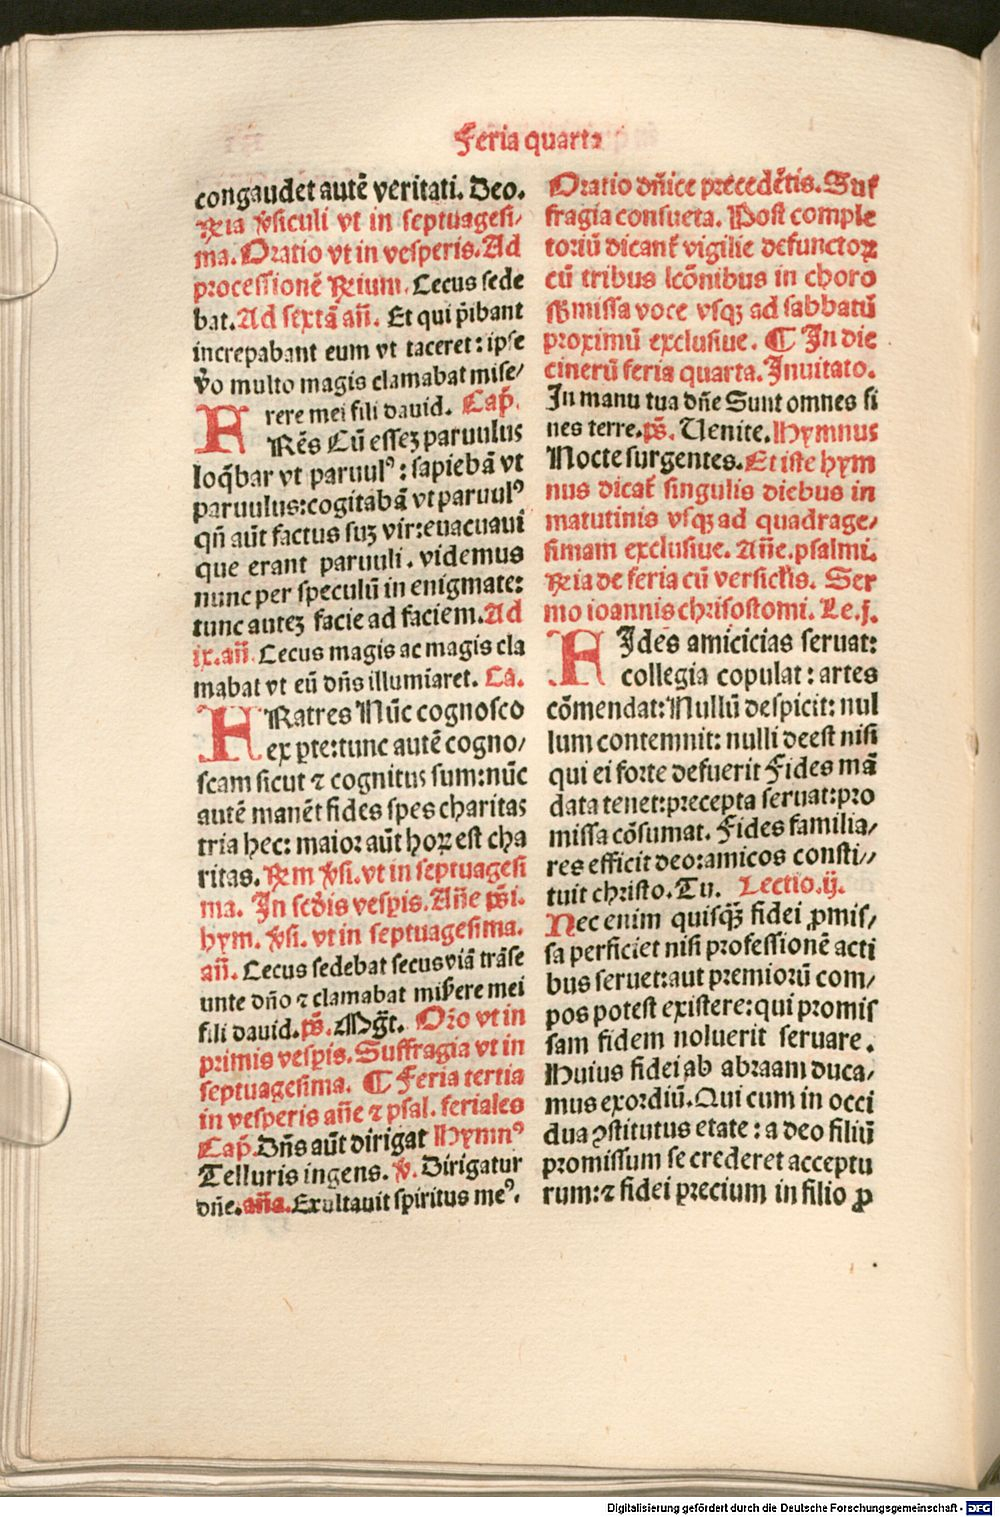 Feria quarta
congaudet autē veritati. Deo.
℞ia v̄siculi vt in septuagesi/
ma. Oratio vt in vesperis. Ad
processionē ℞ium. Cecus sede
bat. Ad sextā añ. Et qui p̄ibant
increpabant eum vt taceret: ipse
v̄o multo magis clamabat mise/
rere mei fili dauid. Cap̄.
FRēs Cū essez paruulus
loq̄bar vt paruulꝰ: sapiebā vt
paruulus: cogitabā vt paruulꝰ
qñ aūt factus suꝫ vir: euacuaui
que erant paruuli. videmus
nunc per speculū in enigmate:
tunc autez facie ad faciem. Ad
ix. añ. Cecus magis ac magis cla
mabat vt eū dñs illumiaret. Ca.
FRatres Nūc cognosco
ex ꝑte: tunc autē cogno/
scam sicut ⁊ cognitus sum: nūc
autē manēt fides spes charitas
tria hec: maior aūt hoꝝ est cha
ritas. ℞m v̄si. vt in septuagesi
ma. In scd̄is vesꝑis. Añe ps̄i.
hym. v̄si. vt in septuagesima.
añ. Cecus sedebat secus viā trāse
unte dño ⁊ clamabat mis̄ere mei
fili dauid. ps̄. Mḡt. Or̄o vt in
primis vesꝑis. Suffragia vt in
septuagesima. ¶ Feria tertia
in vesperis añe ⁊ psal. feriales
Cap̄. Dñs aūt dirigat Hymnꝰ
Telluris ingens. v̄. Dirigatur
dñe. aña. Exultauit spiritus meꝰ.
Oratio dñice precedētis. Suf
fragia consueta. Post comple
toriū dicant̄ vigilie defunctoꝝ
cū tribus lcōnibus in choro
sb̄missa voce vsqꝫ ad sabbatū
proximū exclusiue. ¶ In die
cinerū feria quarta. Inuitato.
In manu tua dñe Sunt omnes fi
nes terre. ps̄. Uenite. Hymnus
Nocte surgentes. Et iste hym
nus dicat̄ singulis diebus in
matutinis vsqꝫ ad quadrage/
simam exclusiue. Añe. psalmi.
℞ia de feria cū versicl̄is. Ser
mo ioannis chrisostomi. Le. j.
FIdes amicicias seruat:
collegia copulat: artes
cōmendat: Nullū despicit: nul
lum contemnit: nulli deest nisi
qui ei forte defuerit Fides mā
data tenet: precepta seruat: pro
missa cōsumat. Fides familia/
res efficit deo: amicos consti//
tuit christo. Tu. Lectio. ij.
Nec enim quisqȝ̄ fidei ꝓmis/
sa perficiet nisi professionē acti
bus seruet: aut premiorū com/
pos potest existere: qui promis
sam fidem noluerit seruare.
Huius fidei ab abraam duca/
mus exordiū. Qui cum in occi
dua ꝯstitutus etate: a deo filiū
promissum se crederet acceptu
rum: ⁊ fidei precium in filio ꝓ
Digitalisierung gefördert durch die Deutsche Forschungsgemeinschaft - DFG